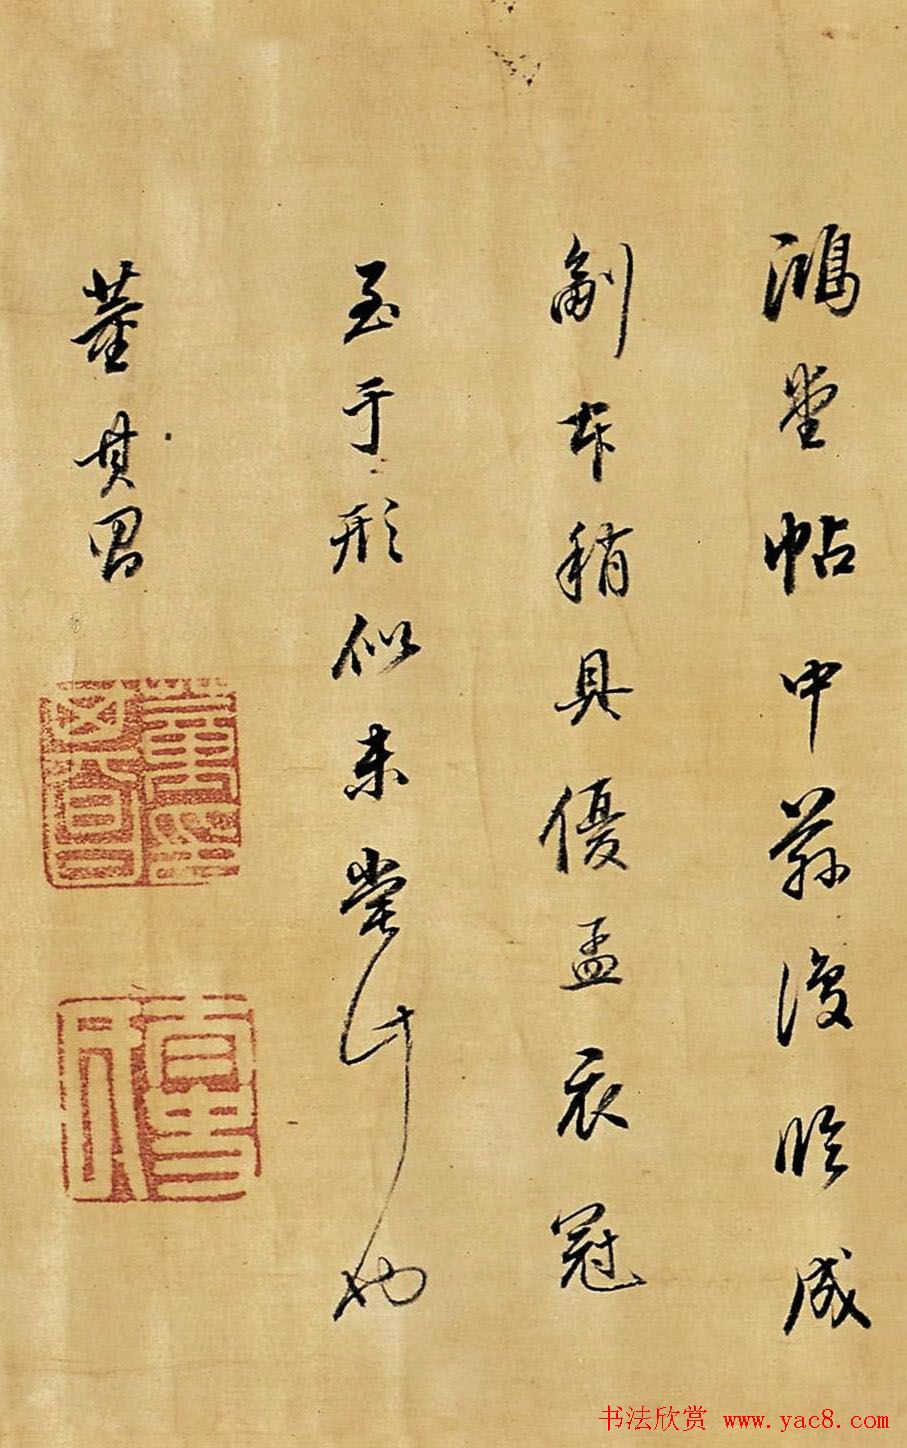 鴻堂帖中茲復臨成
副本稍具優孟衣冠
至于形似未嘗計也
董其昌
书法欣赏 www.yac8.com